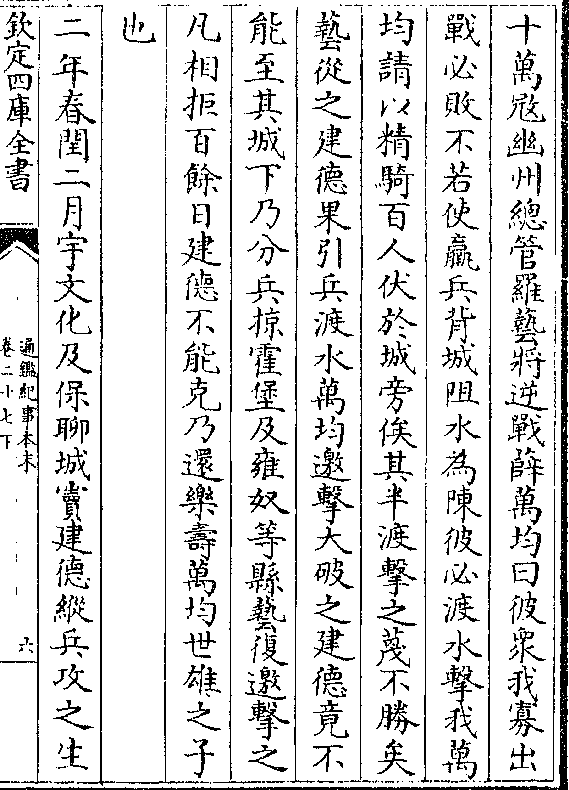 十萬宼幽州總管羅藝將逆戰薛萬均曰彼衆我寡出
戰必敗不若使羸兵背城阻水為陳彼必渡水擊我萬
均請以精騎百人伏於城旁俟其半渡擊之蔑不勝矣
藝從之建德果引兵渡水萬均邀擊大破之建德竟不
能至其城下乃分兵掠霍堡及雍奴等縣藝復邀擊之
凡相拒百餘日建德不能克乃還樂壽萬均世雄之子
也
二年春閏二月宇文化及保聊城竇建德縱兵攻之生
欽定四庫全書
通鑑紀事本末
卷二十七下
六